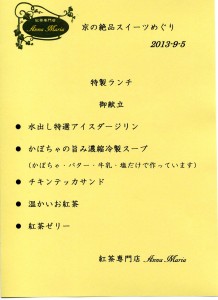 紅茶専門店
Anna Maria
京の絶品スイーツめぐり
2013-9-5
特製ランチ
御献立
● 水出し特選アイスダージリン
● かぼちゃの旨み濃縮冷製スープ
(かぼちゃ・バター・牛乳・塩だけで作っています)
● チキンテッカサンド
● 温かいお紅茶
● 紅茶ゼリー
紅茶専門店 Anna Maria